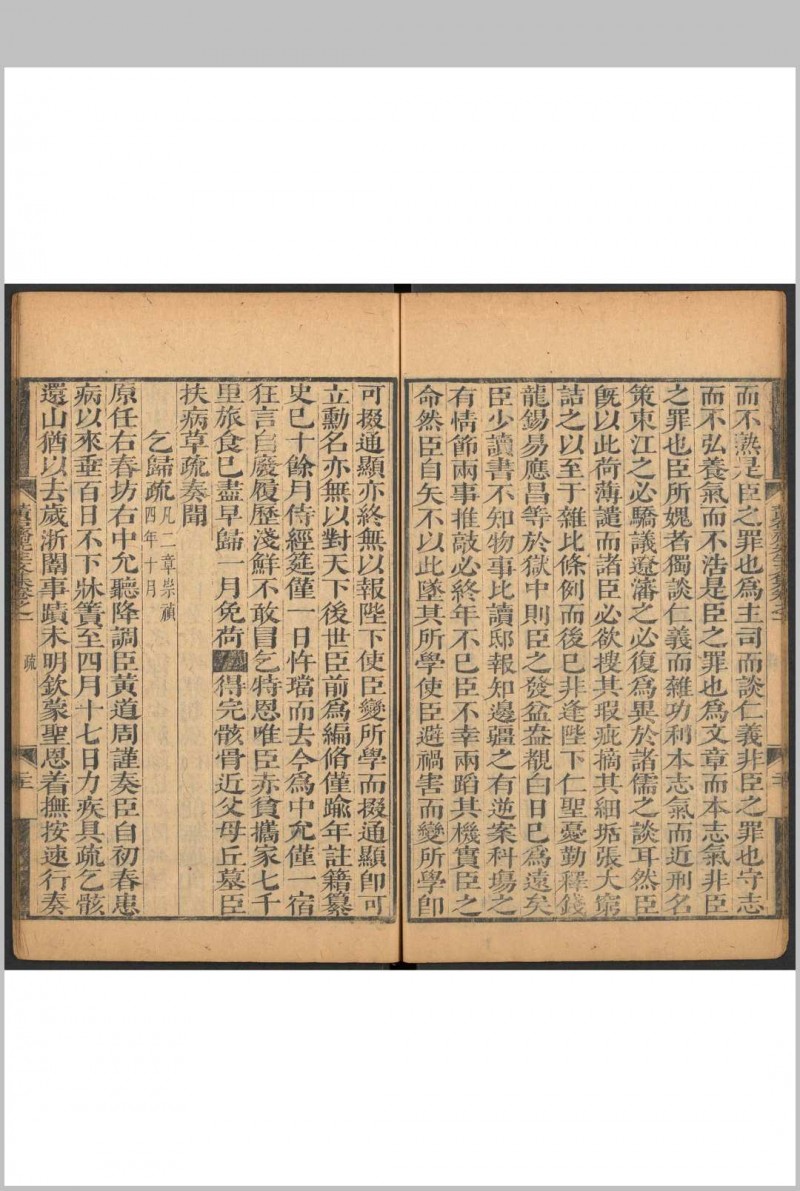 而不熟是臣之罪也爲主司而談仁義非臣之罪也守志
而不弘養氣而不浩是臣之罪也爲文章而本志氣非臣
之罪也臣所媿者獨談仁義而雜功利本志氣而近刑名
策東江之必驕議遼瀋之必復爲異於諸儒之談耳然臣
旣以此荷薄譴而諸臣必欲搜其瑕疵摘其細㫼張大窮
詰之以至于雜比條例而後已非逢陛下仁聖憂勤釋錢
龍錫易應昌等於獄中則臣之發盆盎覩白日已爲遠矣
臣少讀書不知物事比讀邸報知邊疆之有逆案科塲之
有情節兩事推敲必終年不已臣不幸兩蹈其機實臣之
命然臣自矢不以此墜其所學使臣避禍害而變所學卽
可掇通顯亦終無以報陛下使臣變所學而掇通顯卽可
立勳名亦無以對天下後世臣前爲編脩僅踰年註籍纂
史已十餘月侍經筵僅一日忤璫而去今爲中允僅一宿
狂言自廢履歷淺鮮不敢冒乞特恩唯臣亦貧攜家七千
里旅食已盡早歸一月免荷得完骸骨近父母丘墓臣
扶病草疏奏聞
乞歸疏 凡二章崇禎四年十月
原任右春坊右中允聽降調臣黃道周謹奏臣自初春患
病以來垂百日不下牀簀至四月十七日力疾具疏乞骸
還山猶以去歲浙闈事蹟未明欽蒙聖恩着撫按速行奏
疏